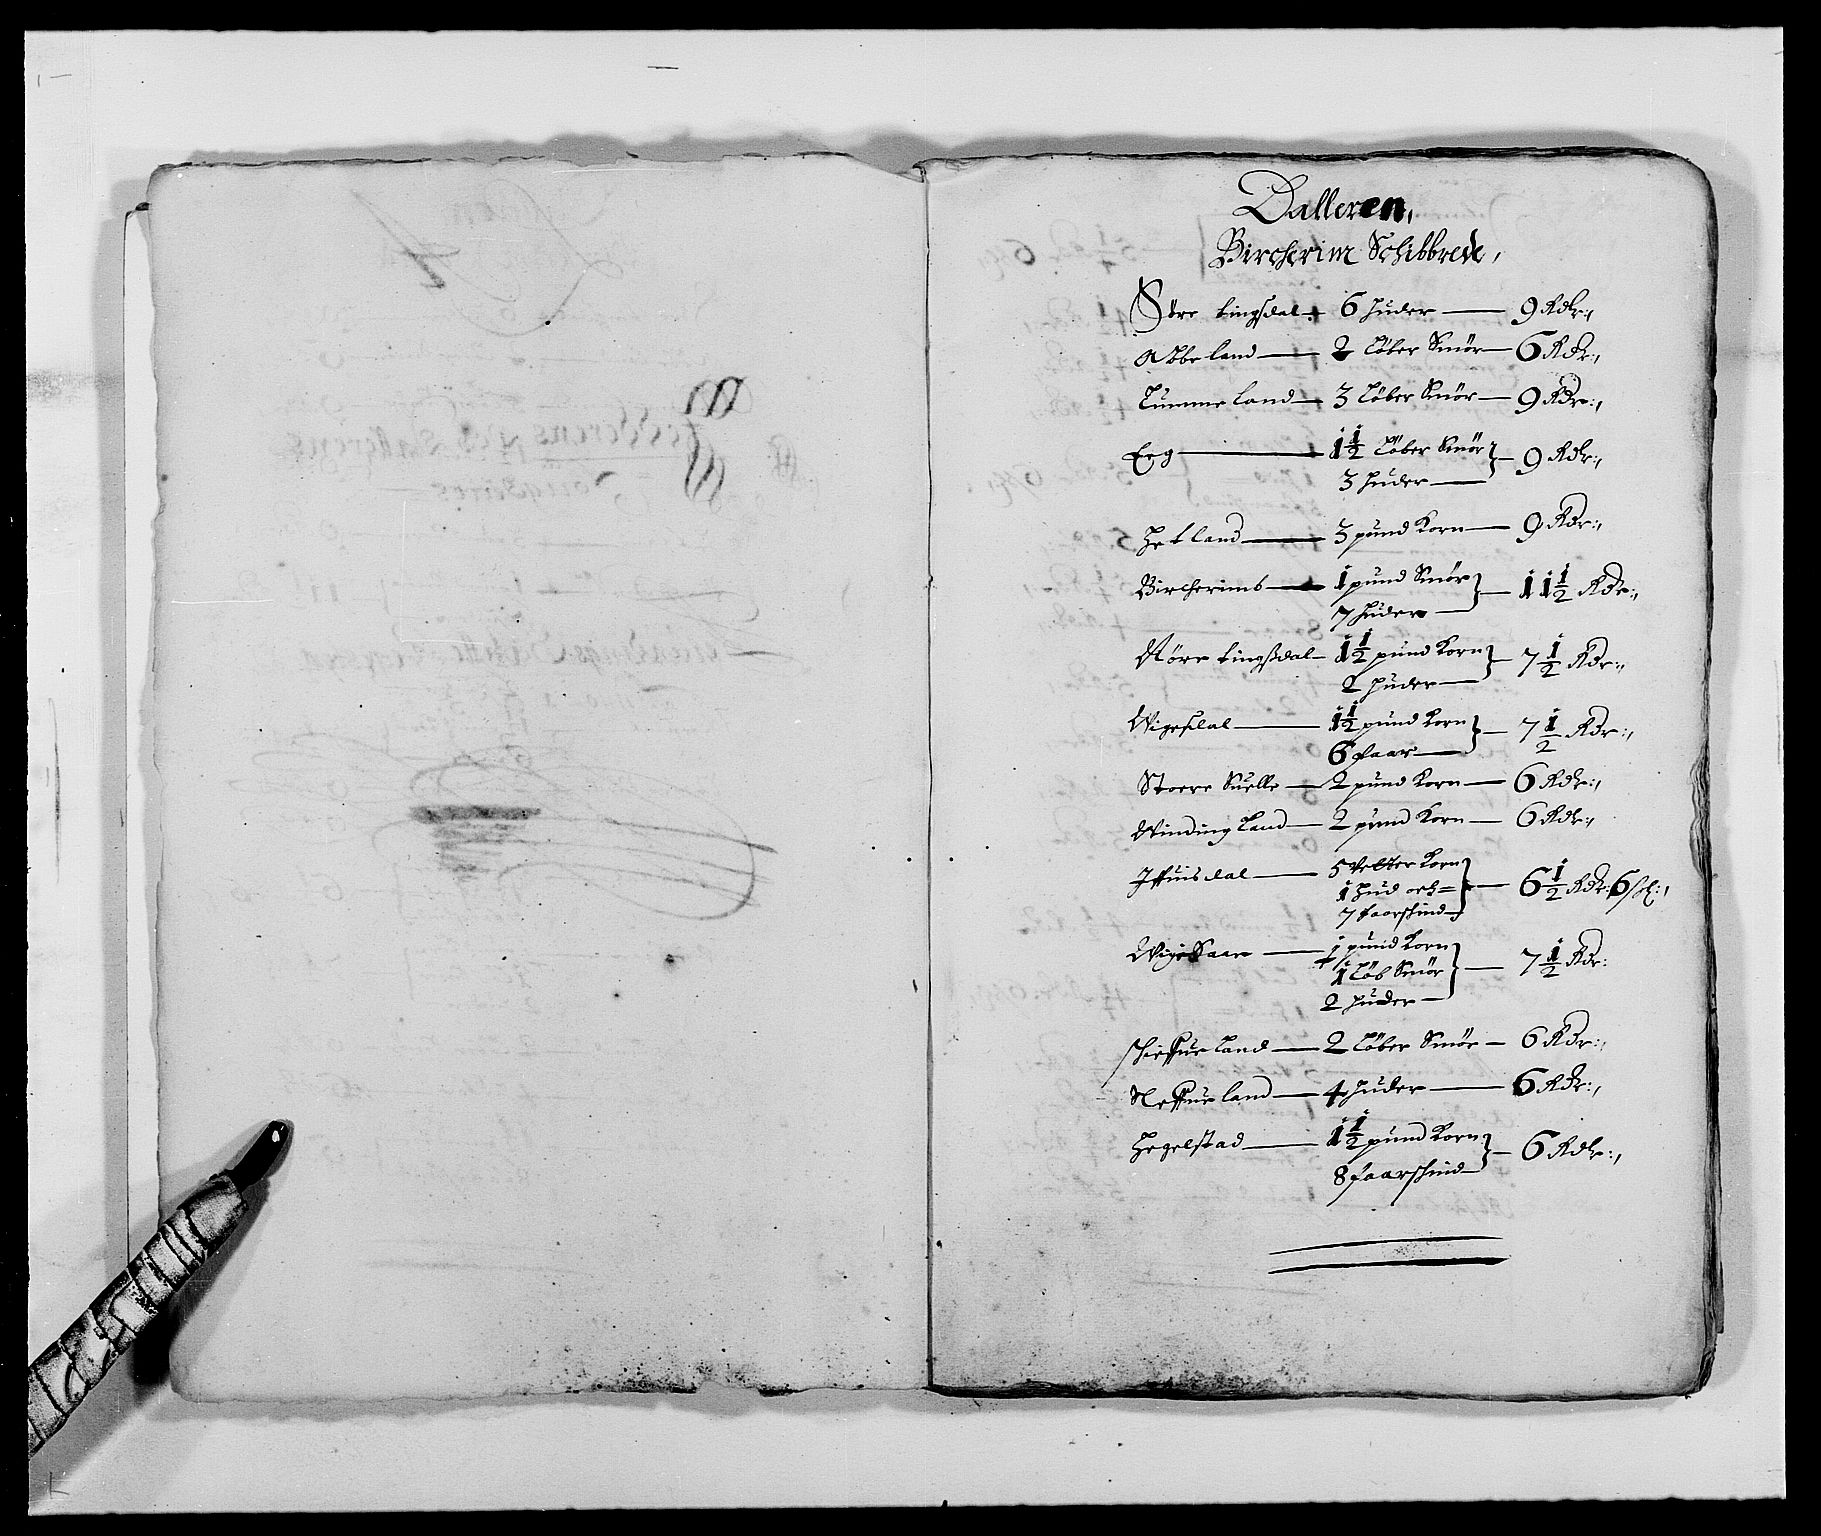 Dalleren,
Bircherim Schibbrede,
Søre tingsdal — 6 huder — 9 Rdr:,
Abbeland — 2 Løber Smør — 6 Rdr:,
Lummeland — 3 Løber Smør — 9 Rdr:,
Eeg — 1½ Løber Smør
3 huder — 9 Rdr:,
Hetland — 3 pund Korn — 9 Rdr:,
Bircherimb — 1 pund Smør
7 huder — 11½ Rdr:,
Nøre tingsdal — 1½ pund Korn
2 huder — 7½ Rdr:,
Wigesdal — 1½ pund Korn
6 faar — 7½ Rdr:,
Stoere Suelle — 2 pund Korn — 6 Rdr:,
Windingland — 2 pund Korn — 6 Rdr:,
Iffuisdal — 5 Vetter Korn
1 hud och =
7 faarskind — 6½ Rdr: 6 sch:,
Wigesaae — 1 pund Korn
1 Løb Smør
2 huder — 7½ Rdr:
Schieffueland — 2 Løber Smør — 6 Rdr:,
Neffueland — 4 huder — 6 Rdr:,
Hegelstad — 1½ pund Korn
8 faarskind — 6 Rdr:,